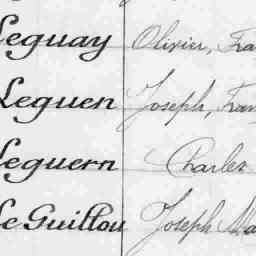 Leguay Olivier, Fra
Leguen Joseph, Fran
Leguern Charles
Le Guillou Joseph Ma